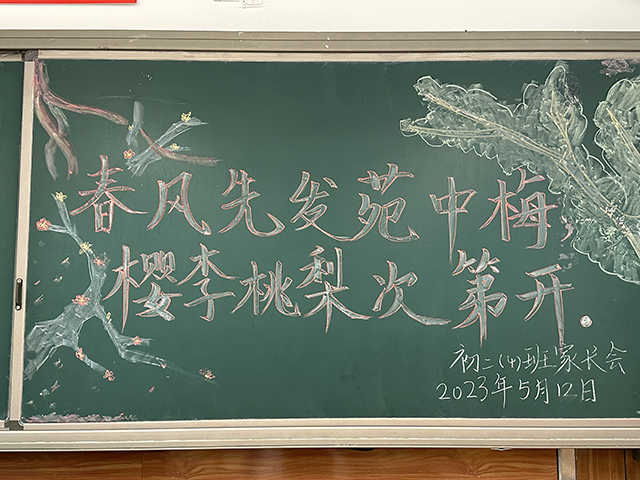 春风先发苑中梅,
樱李桃梨次第开
初二(4)班家长会
2023年5月12日